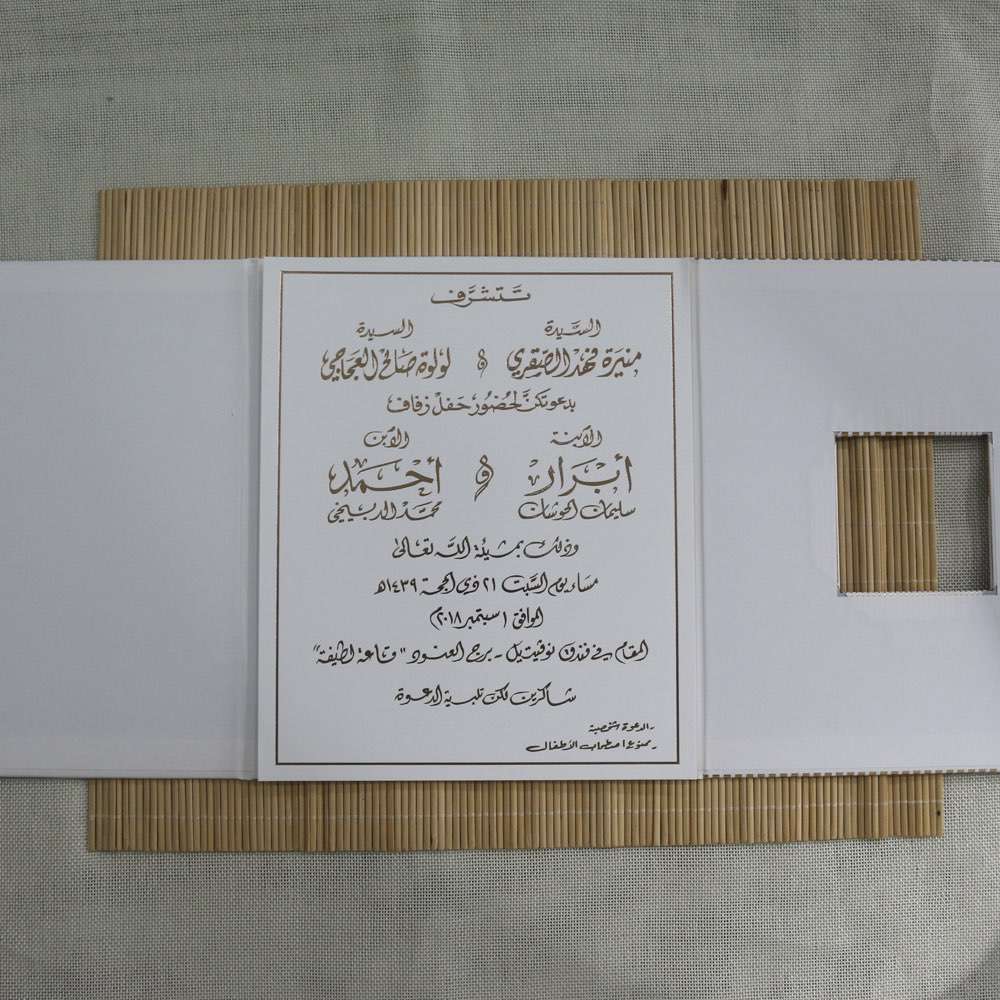 تتشرَّف
السيِّدة السيدة
منيرة فهد الصقري و لؤلؤة صالح العجاجي
بدعوتكنَّ لحضُور حَفل زفاف
الابنة الابن
أبْرَار و أحْمَد
سليمان الحوشان محمَّد الدبيخي
وذلك بمشيئة الله تعَالى
مسَاء يوم السَّبت ٢١ ذي الحجة ١٤٣٩هـ
الموافق ١ سبتمبر ٢٠١٨م
المقام في فندق نوڤيتيل - برج العنود "قاعة لطيفة"
شاكرين لكن تلبية الدعوة
- الدعوة شخصية
- ممنوع اصطحاب الأطفال